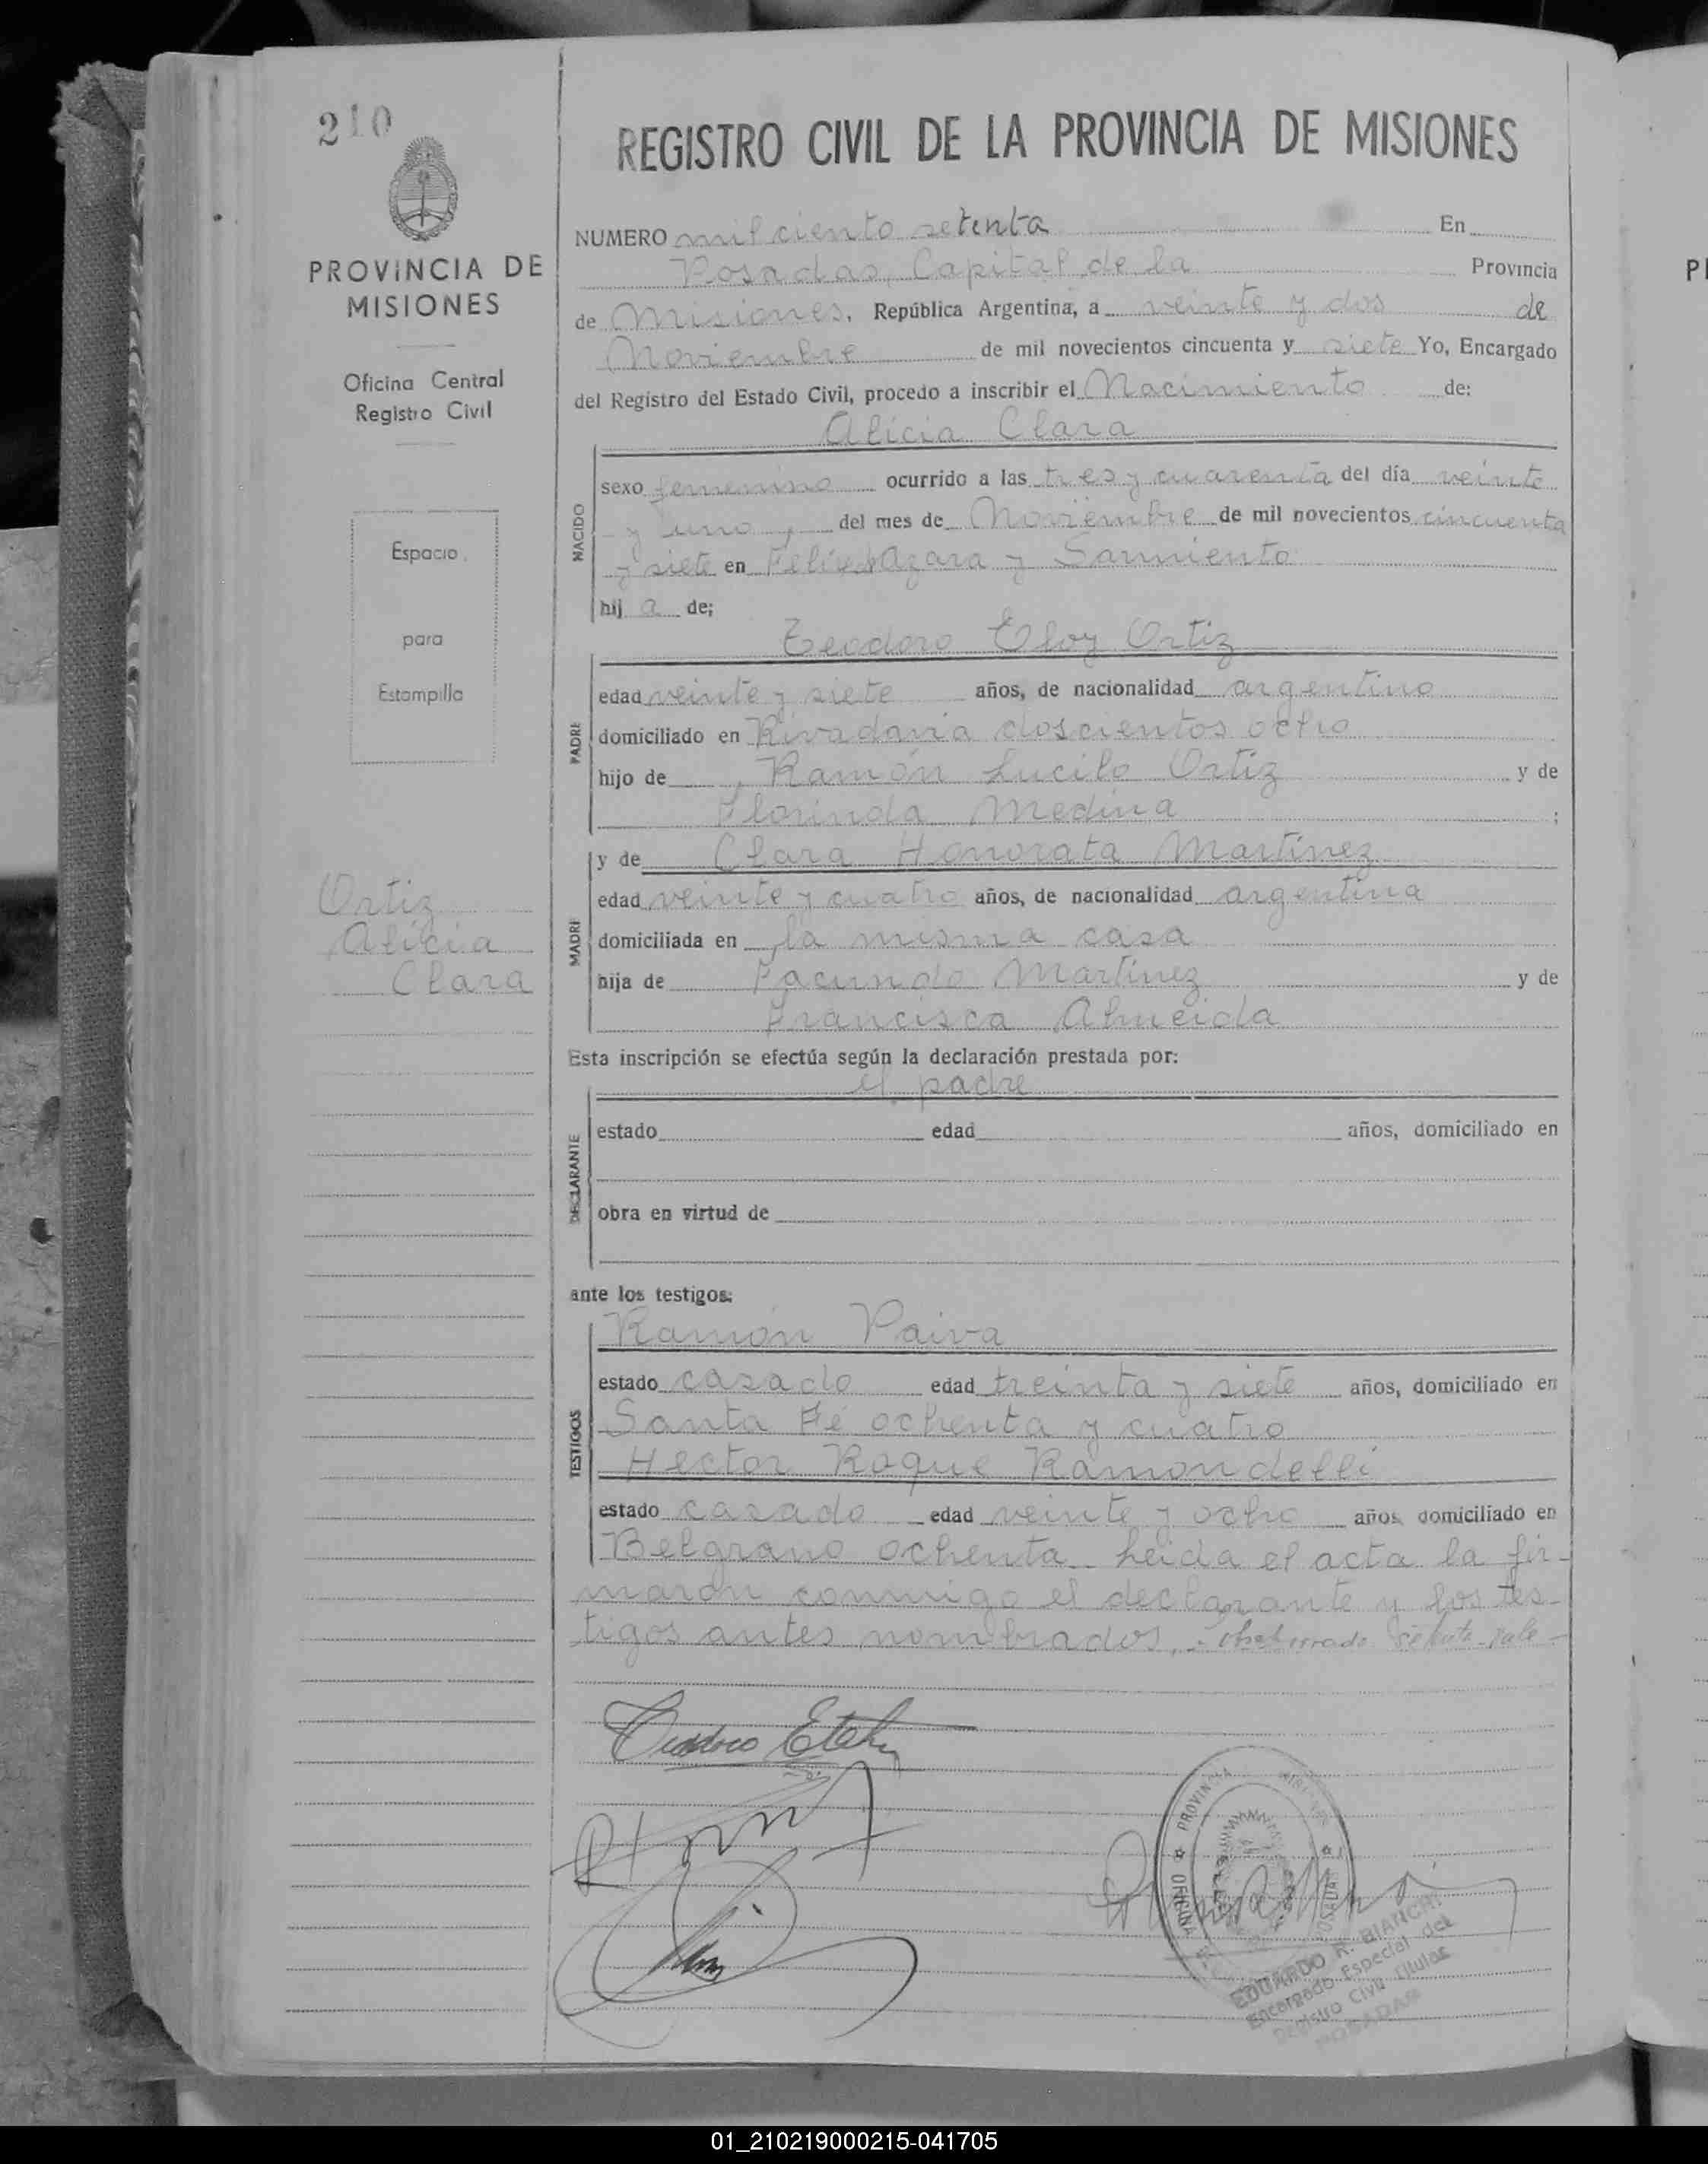 210
PROVINCIA DE
MISIONES
Oficina Central
Registro Civil
Espacio
para
Estampilla
Ortiz
Alicia
Clara
REGISTRO CIVIL DE LA PROVINCIA DE MISIONES
NUMERO mil ciento setenta En
Posadas, Capital de la Provincia
de Misiones, República Argentina, a veinte y dos de
Noviembre de mil novecientos cincuenta y siete Yo, Encargado
del Registro del Estado Civil, procedo a inscribir el Nacimiento de:
Alicia Clara
NACIDO
sexo femenino ocurrido a las tres y cuarenta del día veinte
y uno, del mes de Noviembre de mil novecientos cincuenta
y siete en Félix Azara y Sarmiento
hij a de;
Teodoro Eloy Ortiz
PADRE
edad veinte y siete años, de nacionalidad argentino
domiciliado en Rivadavia doscientos ocho
hijo de Ramón Lucilo Ortiz y de
Florinda Medina ;
y de Clara Honorata Martínez
MADRE
edad veinte y cuatro años, de nacionalidad argentina
domiciliada en la misma casa
hija de Facundo Martínez y de
Francisca Almeida
Esta inscripción se efectúa según la declaración prestada por:
el padre
DECLARANTE
estado edad años, domiciliado en
obra en virtud de
ante los testigos:
TESTIGOS
Ramón Paiva
estado casado edad treinta y siete años, domiciliado en
Santa Fé ochenta y cuatro
Hector Roque Ramondelli
estado casado edad veinte y ocho años domiciliado en
Belgrano ochenta. Leida el acta la fir-
maron conmigo el declarante y los tes-
tigos antes nombrados,
PROVINCIA
OFICINA
POSADAS
EDUARDO R. BIANCHI
Encargado Especial del
Registro Civil Titular
POSADAS
01_210219000215-041705